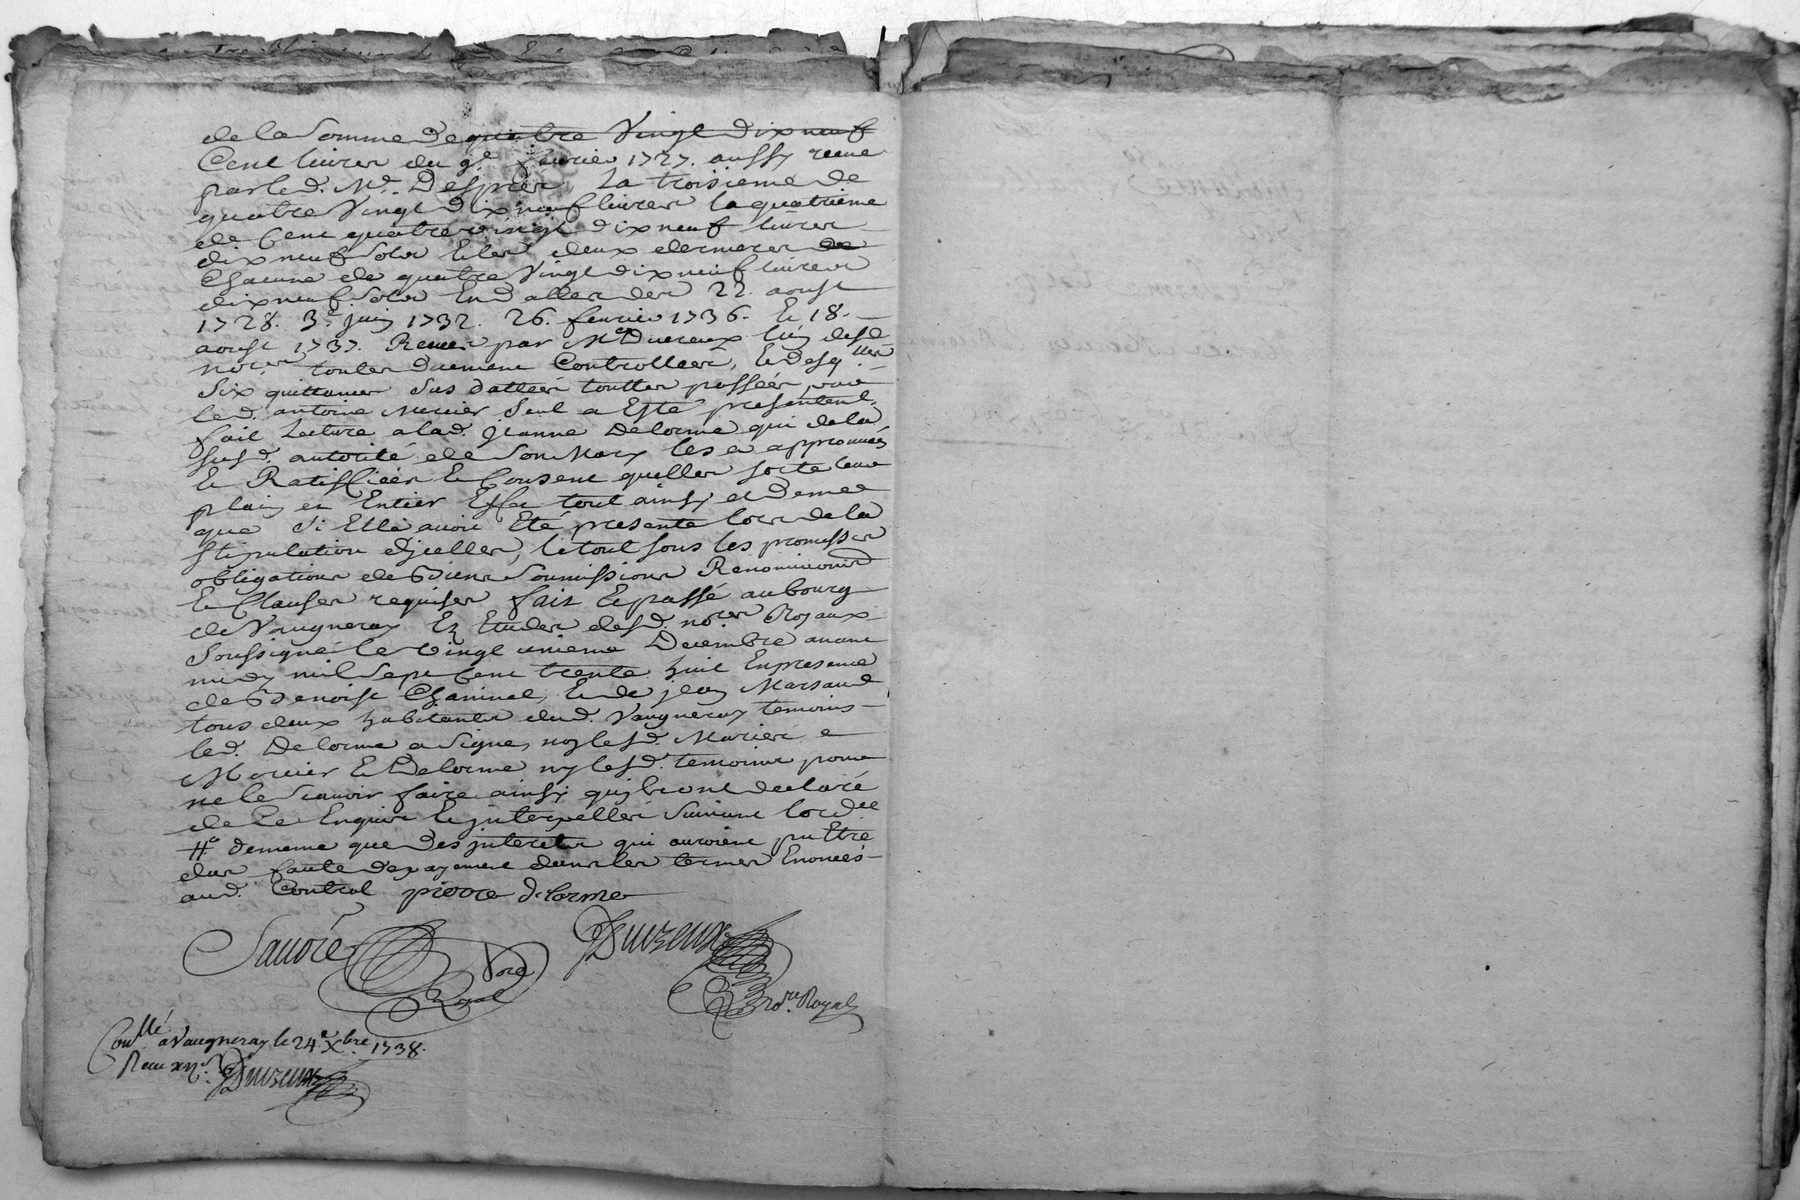 de la somme de quatre vingt dix neuf
Cent livres du 9e fevrier 1727. aussy receue
par led. Me. Desprez, La troisieme de
quatre vingt dix neuf livres la quatrieme
de Cent quatre vingt dix neuf livres
dix neuf sols Et les deux dernieres de
Chacune de quatre vingt dix neuf livres
dix neuf sols En datte des 22. aoust
1728. 3e juin 1732. 26. fevrier 1736. Et 18.
aoust 1737. Receues par Me Duvreux L'un desd.
nores. toutes duement Controllees, Lesdesqlles
Six quittances sus dattées touttes passées par
led. antoine Mercier seul a Esté presentent.
fait Lecture a lad. jeanne Delorme qui de la
susd. autorité de son Mary les a approuvées
Et Ratiffiées Et Consent quelles sorte leur
plain et Entier Effet tout ainsy et de me
que si Elle avoit Eté presente lors de la
stipulation d'jcelles, le tout sous les promesses
obligations de Biens soumissions Renonciaons
Et Clauses requises fait Et passé au bourg
de Vaugneray Ez Etudes desd. nores Royaux
soussigné le vingt unieme Decembre avant
midy mil sept Cent trente huit En presence
de Benoist Chaninel, Et de jean Marsaud
tous deux habitants dud. Vaugneray temoins
led. Delorme a signé, non lesd. Mariés
Mercier Et Delorme ny lesd. temoins pour
ne le scavoir faire ainsy qu'ils ont declaré
de ce Enquis Et jnterpellés suivant lordce
#. de meme que des jnterets qui auroient pu Etre
dus faute de payement dans les termes Enoncés
aud. Contrat pierre delorme
Sauvré Duvreux
Nore Royal Nore. Royal
Conllé a Vaugneray le 24e Xbre 1738.
Receu xijs. Duvreux